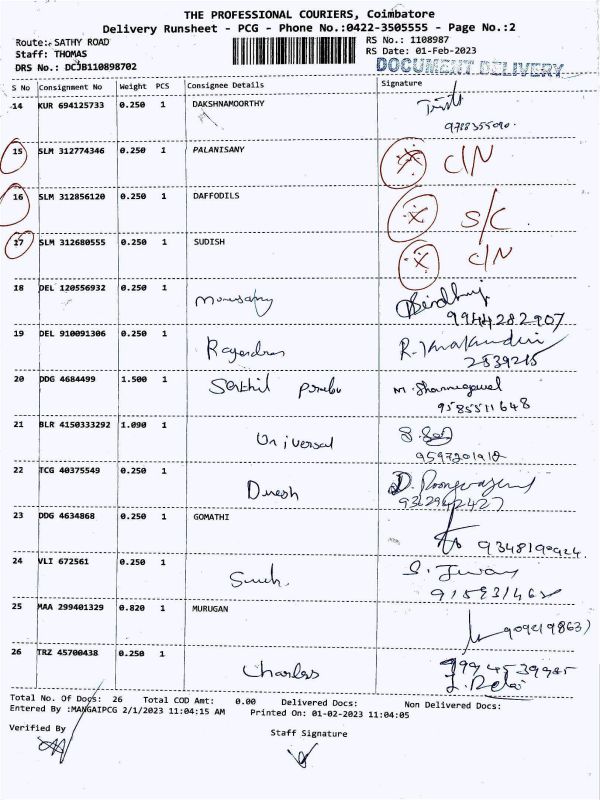 THE PROFESSIONAL COURIERS, Coimbatore
Delivery Runsheet - PCG - Phone No.:0422-3505555 - Page No.:2
Route: SATHY ROAD
RS No.: 1108987
Staff: THOMAS
RS Date: 01-Feb-2023
DRS No.: DCJB110898702
DOCUMENT DELIVERY
S No Consignment No Weight PCS Consignee Details Signature
14 KUR 694125733 0.250 1 DAKSHNAMOORTHY
9788355090
15 SLM 312774346 0.250 1 PALANISANY C/N
16 SLM 312856120 0.250 1 DAFFODILS S/C
17 SLM 312680555 0.250 1 SUDISH C/N
18 DEL 120556932 0.250 1
9944282907
19 DEL 910091306 0.250 1 Rajendran
2539215
20 DDG 4684499 1.500 1 Senthil prabu
9585511648
21 BLR 4150333292 1.090 1 Universal
9597201918
22 TCG 40375549 0.250 1 Dinesh
9362942427
23 DDG 4634868 0.250 1 GOMATHI
24 VLI 672561 0.250 1
25 MAA 299401329 0.820 1 MURUGAN
26 TRZ 45700438 0.250 1 Charless
9994539985
Total No. Of Docs: 26 Total COD Amt: 0.00 Delivered Docs: Non Delivered Docs:
Entered By :MANGAIPCG 2/1/2023 11:04:15 AM Printed On: 01-02-2023 11:04:05
Verified By
Staff Signature